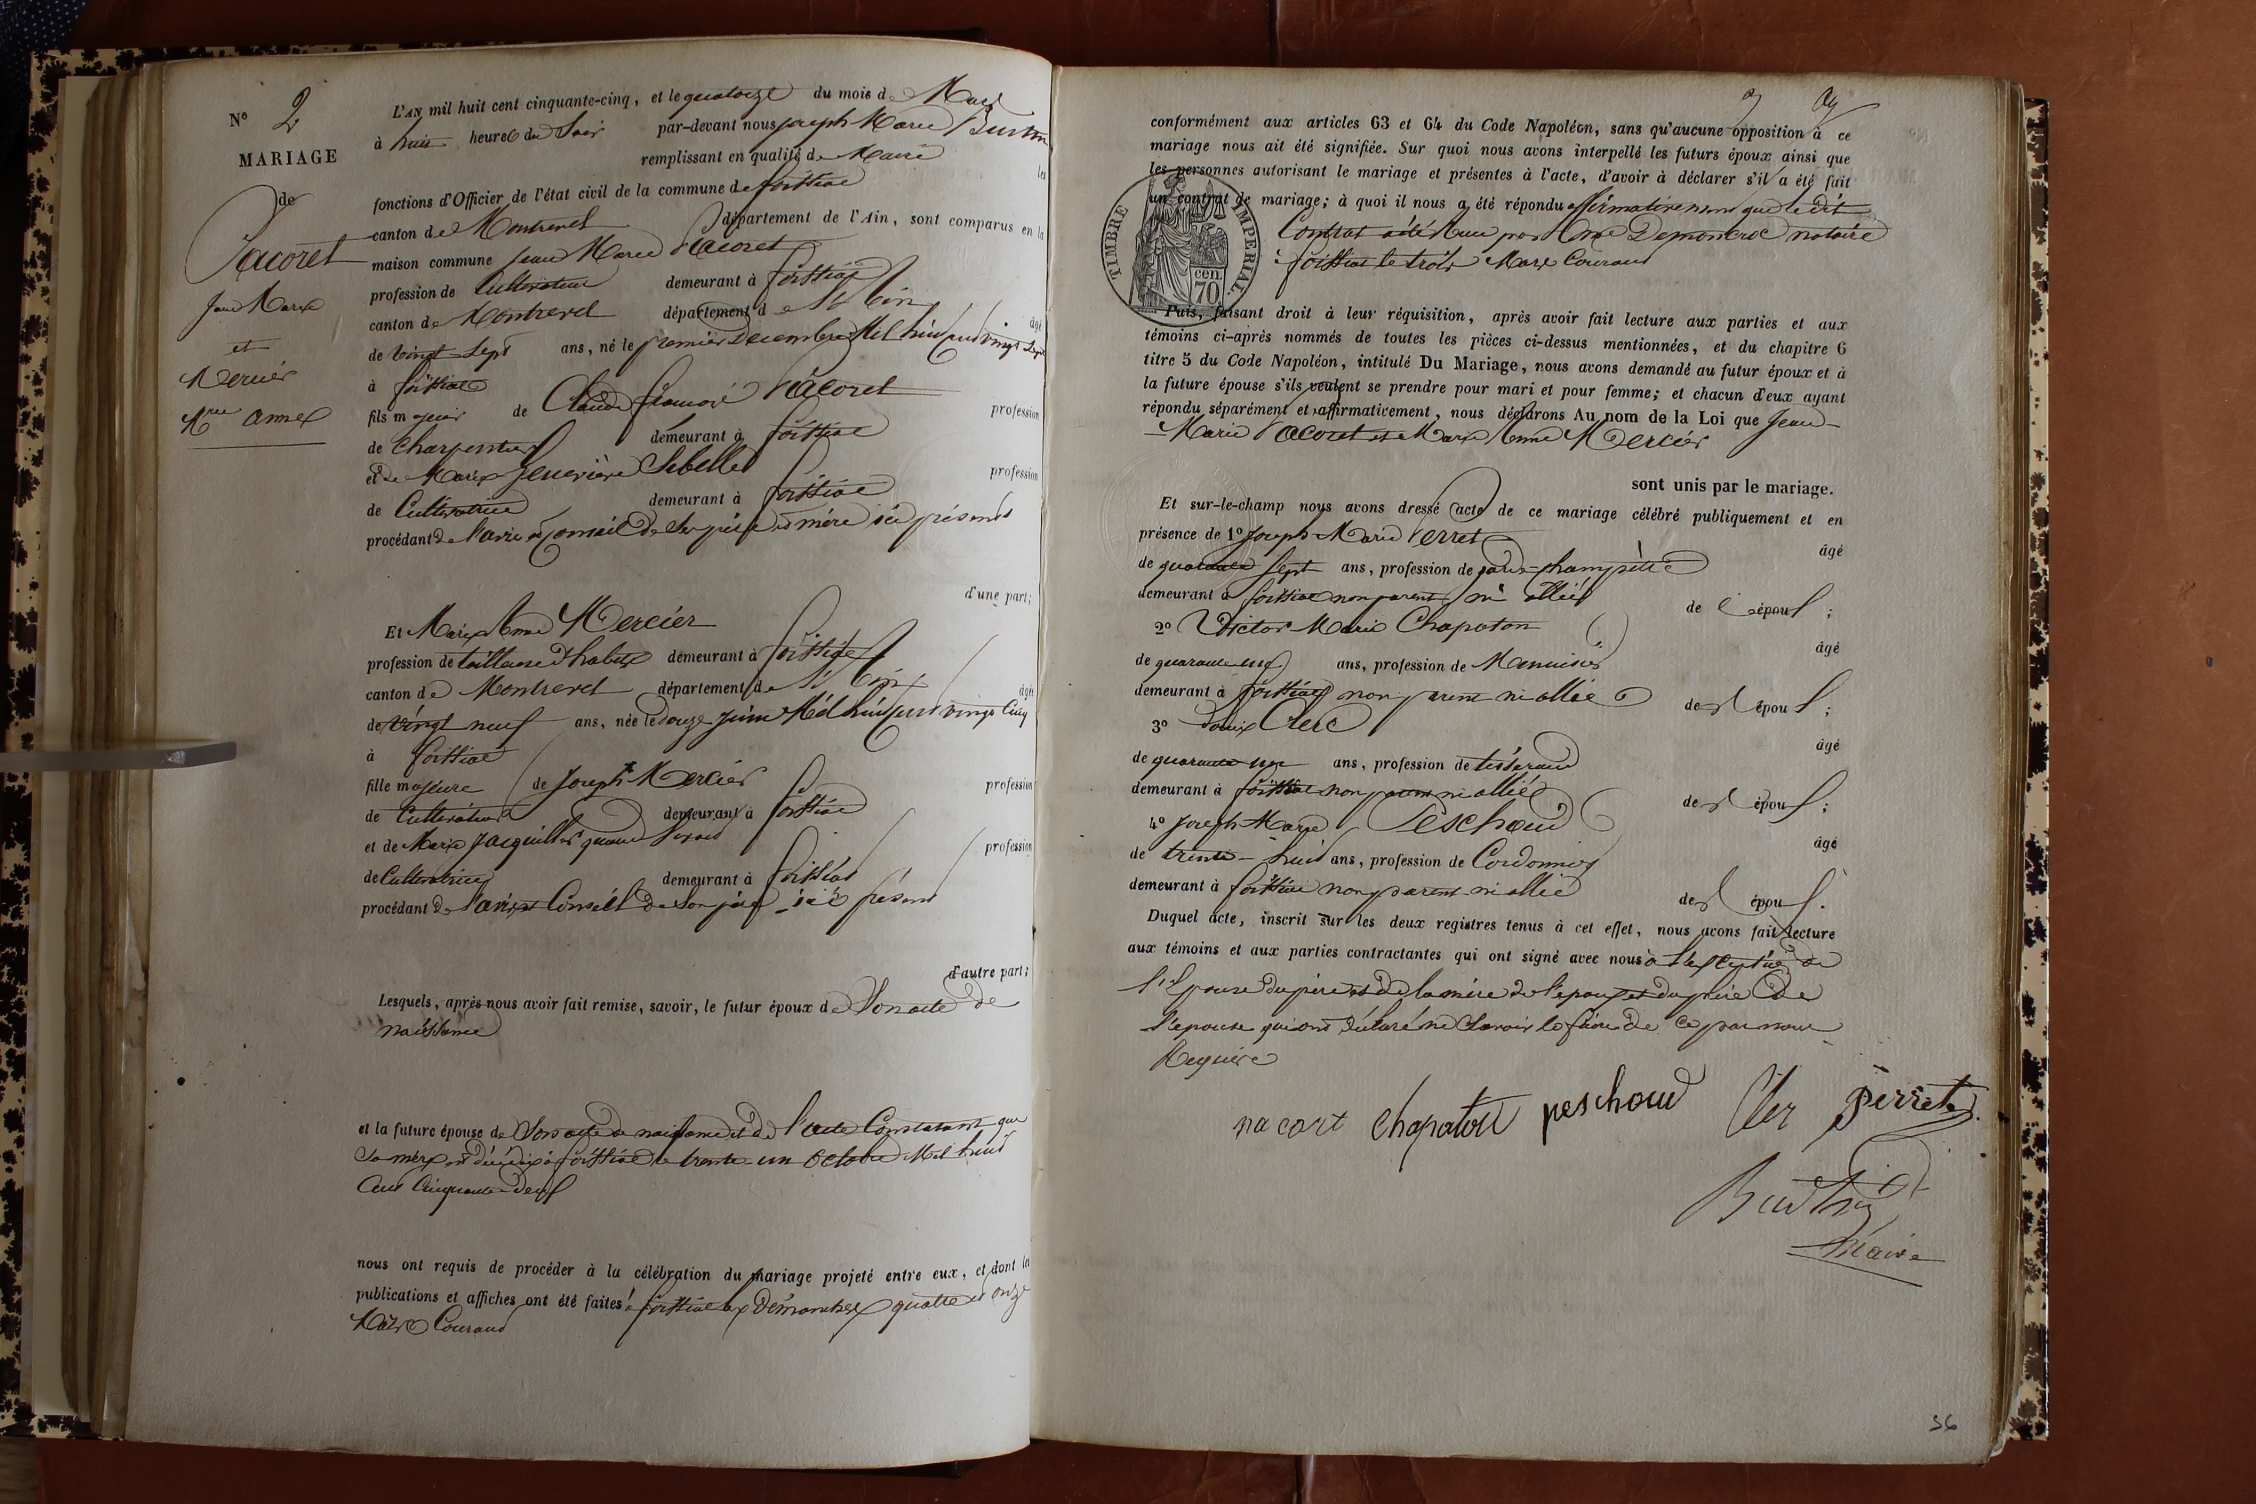 N° 2
MARIAGE
de
Pacoret
Jean Marie
et
Mercier
Mie anne
L'AN mil huit cent cinquante-cinq, et le quatorze du mois de Mars
à huit heures du Soir par-devant nous joseph Marie Buathier
remplissant en qualité de Maire les
fonctions d'Officier de l'état civil de la commune de foissiat
canton de Montrevel département de l'Ain, sont comparus en la
maison commune jean Marie Pacoret
profession de Cultivateur demeurant à foissiat
canton de Montrevel département de l'ain âgé
de vingt Sept ans, né le premier Decembre Mil huit cent vingt Sept
à foissiat
fils majeur de Claude françois Pacoret profession
de Charpentier demeurant à foissiat
et de Marie Genevière Sibellas profession
de Cultivatrice demeurant à foissiat
procédant de l'avis et Conseil de Ses père et mère ici présents
d'une part;
Et Marie Anne Mercier
profession de tailleuse d'habits demeurant à foissiat
canton de Montrevel département de l'ain âgée
de vingt neuf ans, née le douze juin Mil huit cent vingt Cinq
à foissiat
fille majeure de Joseph Mercier profession
de Cultivateur demeurant à foissiat
et de Marie jacquillet quand vivait profession
de Cultivatrice demeurant à foissiat
procédant de l'avis et Conseil de Son père ici présent
d'autre part;
Lesquels, après nous avoir fait remise, savoir, le futur époux de Son acte de
naissance
et la future épouse de Son acte de naissance et de l'acte Constatant que
Sa mère est décédée à foissiat le trente-un Octobre Mil huit
Cent Cinquante-deux
nous ont requis de procéder à la célébration du mariage projeté entre eux, et dont les
publications et affiches ont été faites à foissiat les dimanches quatre et onze
Mars Courant
conformément aux articles 63 et 64 du Code Napoléon, sans qu'aucune opposition à ce
mariage nous ait été signifiée. Sur quoi nous avons interpellé les futurs époux ainsi que
les personnes autorisant le mariage et présentes à l'acte, d'avoir à déclarer s'il a été fait
un contrat de mariage; à quoi il nous a été répondu affirmativement que le dit
Contrat a été Reçu par Me Demoncroc notaire
à foissiat le trois Mars Courant
TIMBRE IMPERIAL
cen.
70
Puis, faisant droit à leur réquisition, après avoir fait lecture aux parties et aux
témoins ci-après nommés de toutes les pièces ci-dessus mentionnées, et du chapitre 6
titre 5 du Code Napoléon, intitulé Du Mariage, nous avons demandé au futur époux et à
la future épouse s'ils veulent se prendre pour mari et pour femme; et chacun d'eux ayant
répondu séparément et affirmativement, nous déclarons Au nom de la Loi que Jean-
Marie Pacoret et Marie Anne Mercier
sont unis par le mariage.
Et sur-le-champ nous avons dressé acte de ce mariage célébré publiquement et en
présence de 1° Joseph Marie Perret âgé
de quarante Sept ans, profession de garde-champêtre
demeurant à foissiat non parent ni allié de s époux;
2° Victor Marie Chapaton âgé
de quarante un ans, profession de Menuisier
demeurant à foissiat non parent ni allié des époux;
3° Louis Clerc âgé
de quarante un ans, profession de tisserand
demeurant à foissiat non parent ni allié des époux;
4° Joseph Marie Peschoud âgé
de trente-huit ans, profession de Cordonnier
demeurant à foissiat non parent ni allié des époux.
Duquel acte, inscrit sur les deux registres tenus à cet effet, nous avons fait lecture
aux témoins et aux parties contractantes qui ont signé avec nous à l'exception de
l'Epouse du père et de la mère de l'epoux et du père de
l'epouse qui ont déclaré ne Savoir le faire de Ce par nous
Requis
pacort chapaton peschoud Cler perret
Maire
56